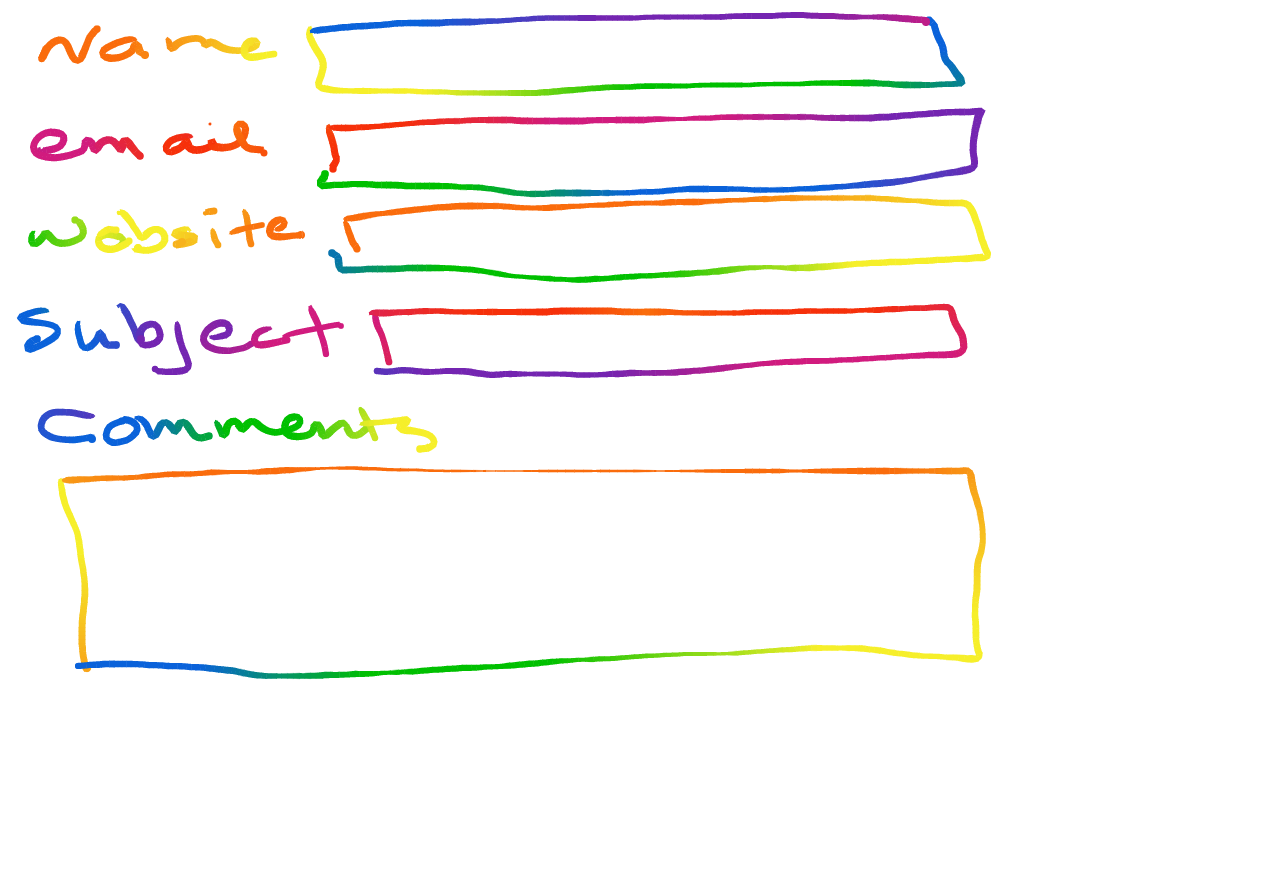 Name
email
website
Subject
Comments